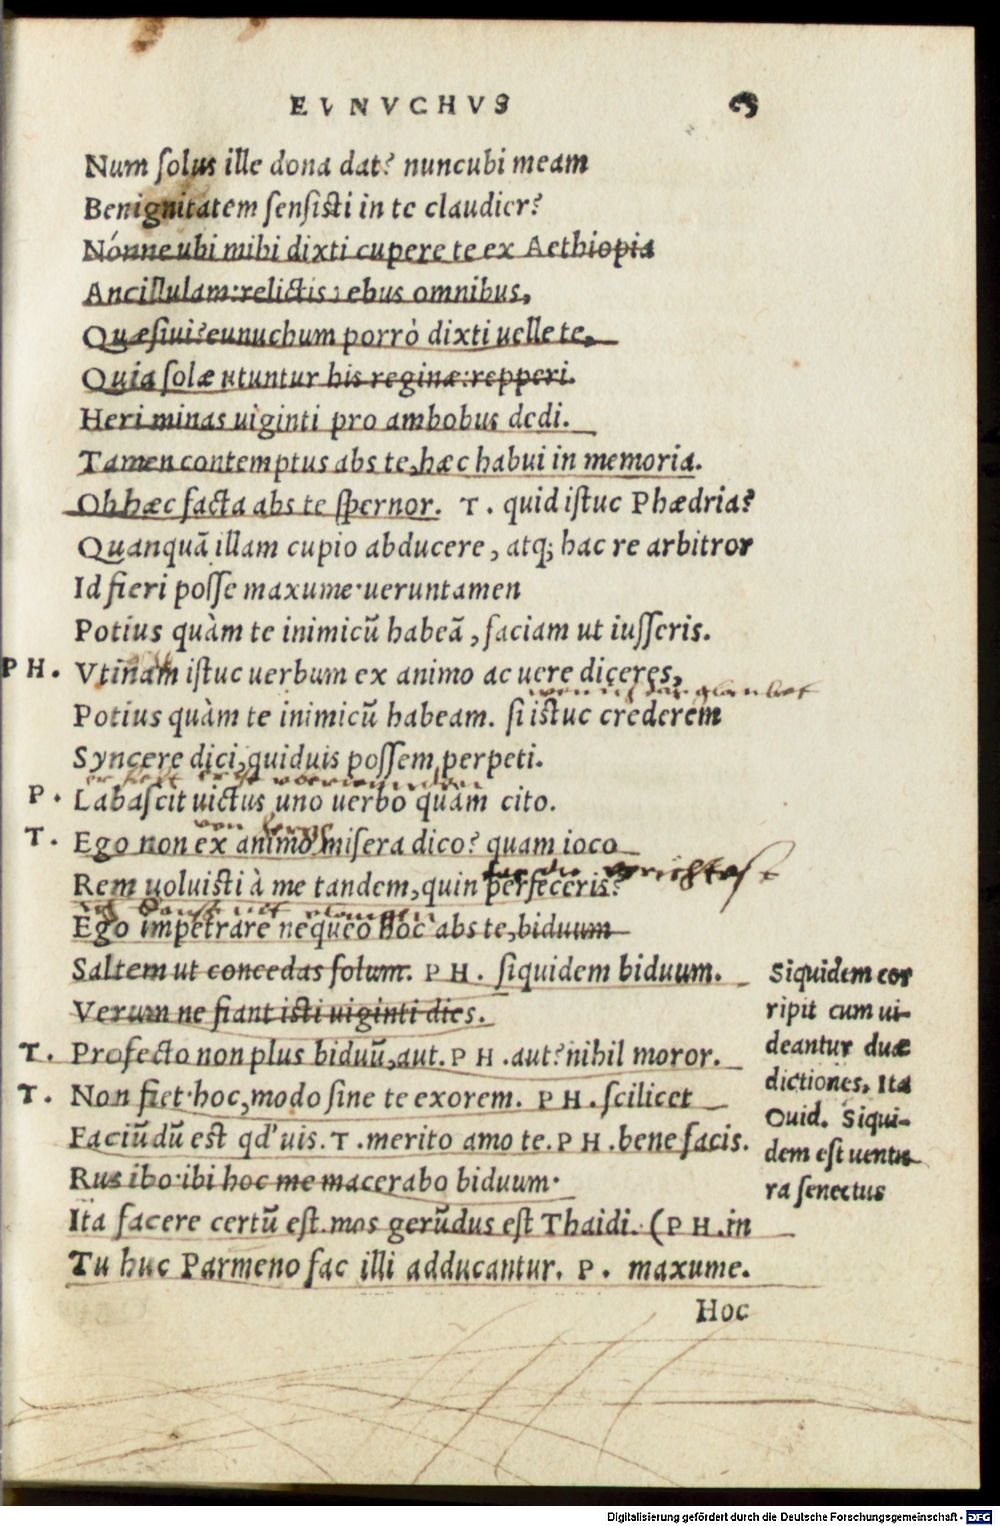 EVNVCHVS
Num ſolus ille dona dat? nuncubi meam
Benignitatem ſenſisti in te claudier?
Nónne ubi mihi dixti cupere te ex Aethiopia
Ancillulam:relictis rebus omnibus,
Quæsiui?eunuchum porrò dixti uelle te,
Quia ſolæ utuntur his reginæ:repperi.
Heri minas uiginti pro ambobus dedi.
Tamen contemptus abs te,hæc habui in memoria.
Ob hæc facta abs te ſpernor. T. quid iſtuc Phædria?
Quanquā illam cupio abducere, atq; hac re arbitror
Id fieri poſſe maxume·ueruntamen
Potius quàm te inimicū habeā, faciam ut iuſſeris.
PH. Vtinam iſtuc uerbum ex animo ac uere diceres,
Potius quàm te inimicū habeam. ſi iſtuc crederem
Syncere dici,quiduis poſſem perpeti.
P. Labaſcit uictus uno uerbo quàm cito.
von
T. Ego non ex animo miſera dico? quam ioco
Rem uoluisti à me tandem,quin perfeceris?
Ego impetrare nequeo hoc abs te,biduum
Saltem ut concedas ſolum. PH. ſiquidem biduum.
Verum ne fiant isti uiginti dies.
T. Profecto non plus biduū,aut. PH. aut?nihil moror.
T. Non fiet·hoc,modo ſine te exorem. PH. ſcilicet
Faciūdū est qd' uis. T. merito amo te. PH. bene facis.
Rus ibo·ibi hoc me macerabo biduum·
Ita facere certū eſt.mos gerūdus eſt Thaidi. (PH. in
Tu huc Parmeno fac illi adducantur. P. maxume.
Hoc
Siquidem cor
ripit cum ui-
deantur duæ
dictiones, Ita
Ouid. Siqui-
dem eſt uentu
ra ſenectus
Digitalisierung gefördert durch die Deutsche Forschungsgemeinschaft - DFG